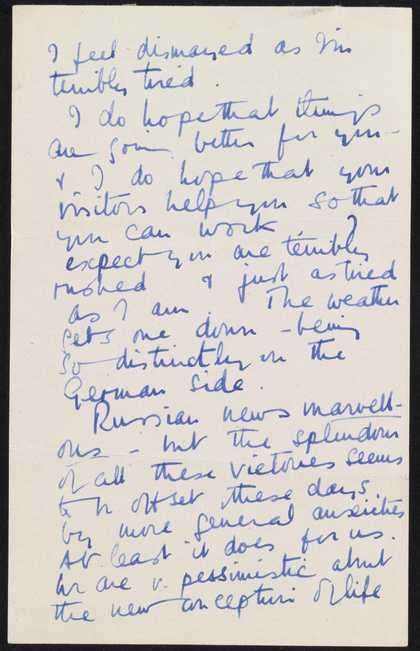 I feel dismayed as I'm
terribly tired.
I do hope that things
are going better for you –
& I do hope that your
visitors help you so that
you can work I
expect you are terribly
rushed & just as tired
as I am. The weather
gets one down – being
so distinctly on the
German side.
Russian news marvell-
ous – but the splendour
of all these victories seems
to be offset these days
by more general anxieties
At least it does for us.
We are v. pessimistic about
the new conception of life